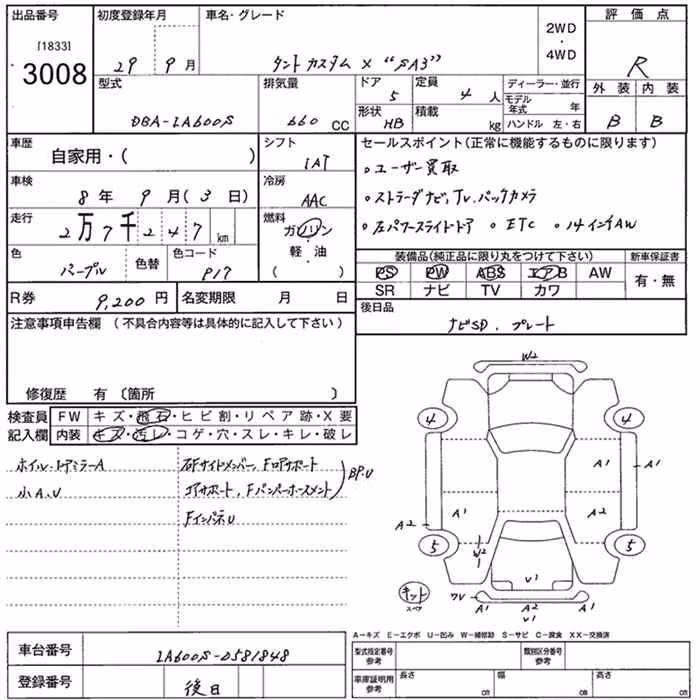 出品番号 初度登録年月 車名・グレード 評価点
[1833]
3008 29 9月 タントカスタム X “SA3” 2WD・4WD R
型式 排気量 ドア 5 定員 4人 ディーラー・並行 外装 内装
DBA-LA600S 660 CC 形状 HB 積載 kg モデル年式 年 B B
ハンドル 左・右
車歴 自家用・( ) シフト 1AT セールスポイント(正常に機能するものに限ります)
車検 8年 9月(3日) 冷房 AAC 。ユーザー買取
。ストラーダナビ,TV.バックカメラ
走行 2万7千247km 燃料 ガソリン 。左パワースライドドア 。ETC 。14インチAW
軽・油
( )
色 パープル 色替 色コード P17 装備品(純正品に限り丸をつけて下さい) 新車保証書
PS PW ABS エアB AW 有・無
R券 9,200円 名変期限 月 日 SR ナビ TV カワ
注意事項申告欄(不具合内容等は具体的に記入して下さい) 後日品
ナビSD. プレート
修復歴 有 〔箇所 〕
検査員 FW キズ・飛石・ヒビ割・リペア跡・X要
記入欄 内装 キズ・汚レ・コゲ・穴・スレ・キレ・破レ
W2
4 4
ホイル・ドアミラーA 右Fサイドメンバー,Fロアサポート
小A.U コアサポート,Fバンパーホースメント BP.U
FインパネU
A1 A1
A2 A1 A2
5 W2 5
1
V1
キット
スペア
WV A1 A2 A1
V1
A-キズ E-エクボ U-凹み W-補修跡 S-サビ C-腐食 XX-交換済
車台番号 LA600S-0581848 型式指定番号 参考 類別区分番号 参考
登録番号 後日 車庫証明用 参考 長さ cm 幅 cm 高さ cm